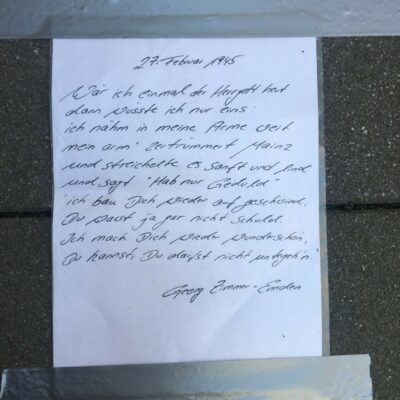 27. Februar 1945
Wär ich einmal der Herrgott heut
dann wüsste ich nur eins:
ich nähm in meine Arme weit
mein arm' zertrümmert Mainz
und streichelte es sanft und lind
und sagt "Hab nur Geduld"
ich bau Dich wieder auf geschwind,
Du warst ja gar nicht Schuld.
Ich mach Dich wieder wunderschön,
Du kannst, Du darfst nicht untergehn.
Georg Zimmer-Emden